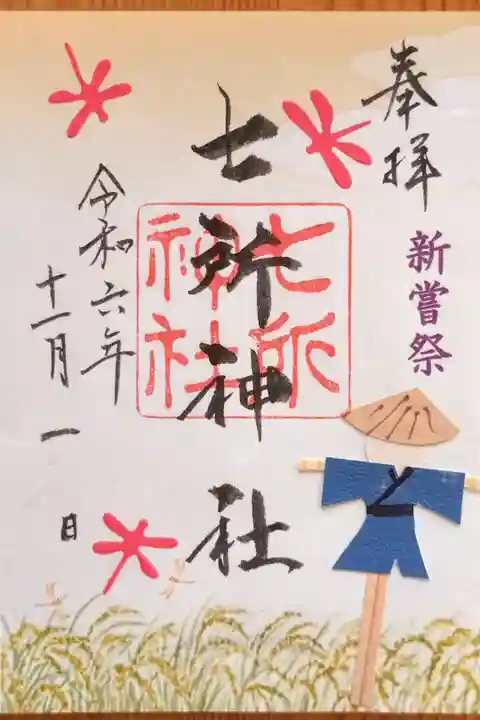 奉拝
新嘗祭
七所神社
七所
神社
令和六年
十一月一日